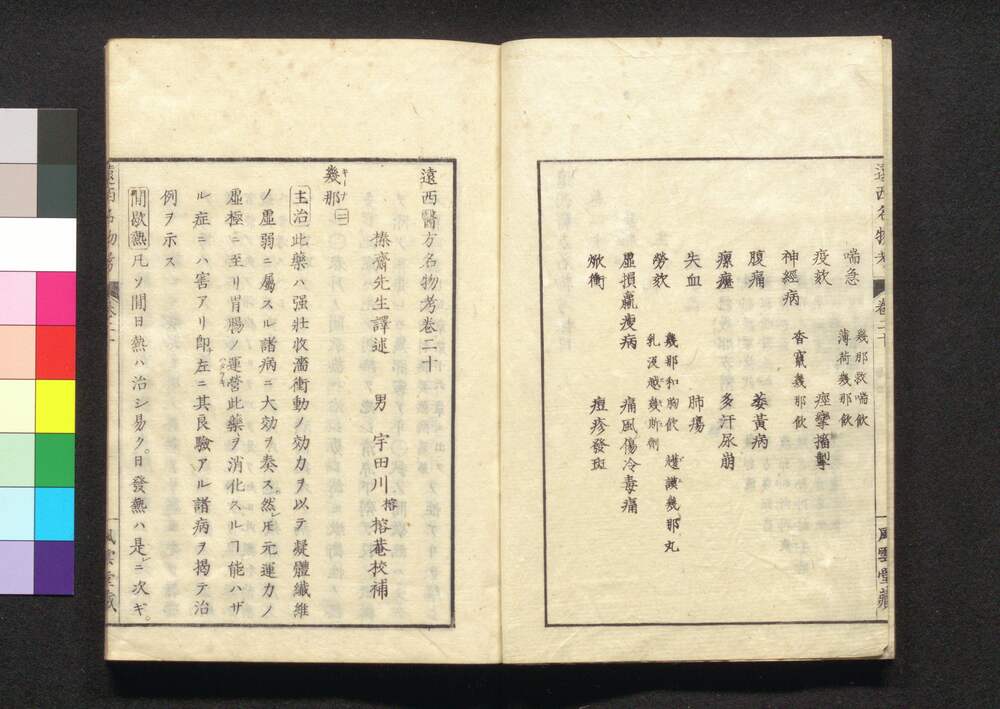 喘急
幾那救喘飲
薄荷幾那飲
疫欬
痙攣搐掣
神經病
香竄幾那飲
腹痛
萎黃病
瘰癧
多汗尿崩
失血
肺瘍
勞欬
幾那和胸飲
幾那丸
乳汲越幾斯劑
虛損羸瘦病
痛風傷冷毒痛
焮衝
痘疹發斑
遠西名物考
卷二十
風雲堂藏
遠西醫方名物考卷二十
榛齋先生譯述 男 宇田川榕 榕菴校補
幾那 二
キーナ
主治 此藥ハ强壯收濇衝動ノ効力ヲ以テ凝體纖維
ノ虛弱ニ屬スル諸病ニ大効ヲ奏ス然レ𪜈元運力ノ
虛極ニ至リ胃腸ノ運營此藥ヲ消化スルヿ能ハザ
ル症ニハ害アリ卽左ニ其良驗アル諸病ヲ揭テ治
例ヲ示ス
間歇熱 凡ソ間日熱ハ治シ易ク。日發熱ハ是ニ次ギ。
遠西名物考
卷二十
風雲堂藏